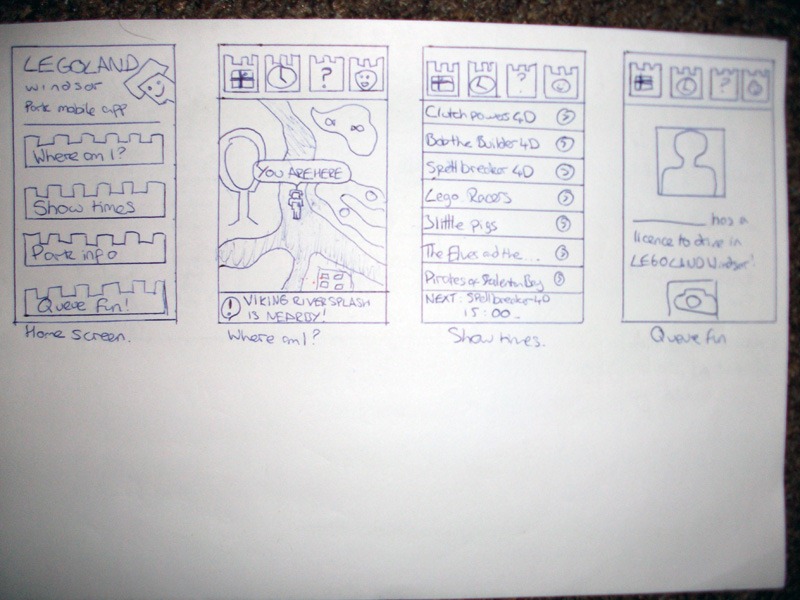 LEGOLAND
Windsor
Park mobile app
Where am I?
Show times
Park info
Queue fun!
Home screen.
?
YOU ARE HERE
VIKING RIVER SPLASH
IS NEARBY!
Where am I?
?
Clutch powers 4D
Bob the Builder 4D
Spellbreaker 4D
Lego Racers
3 little pigs
The Elves and the....
Pirates of Skeleton Bay
NEXT: Spellbreaker 4D
15:00
Show times.
?
has a
licence to drive in
LEGOLAND Windsor!
Queue fun